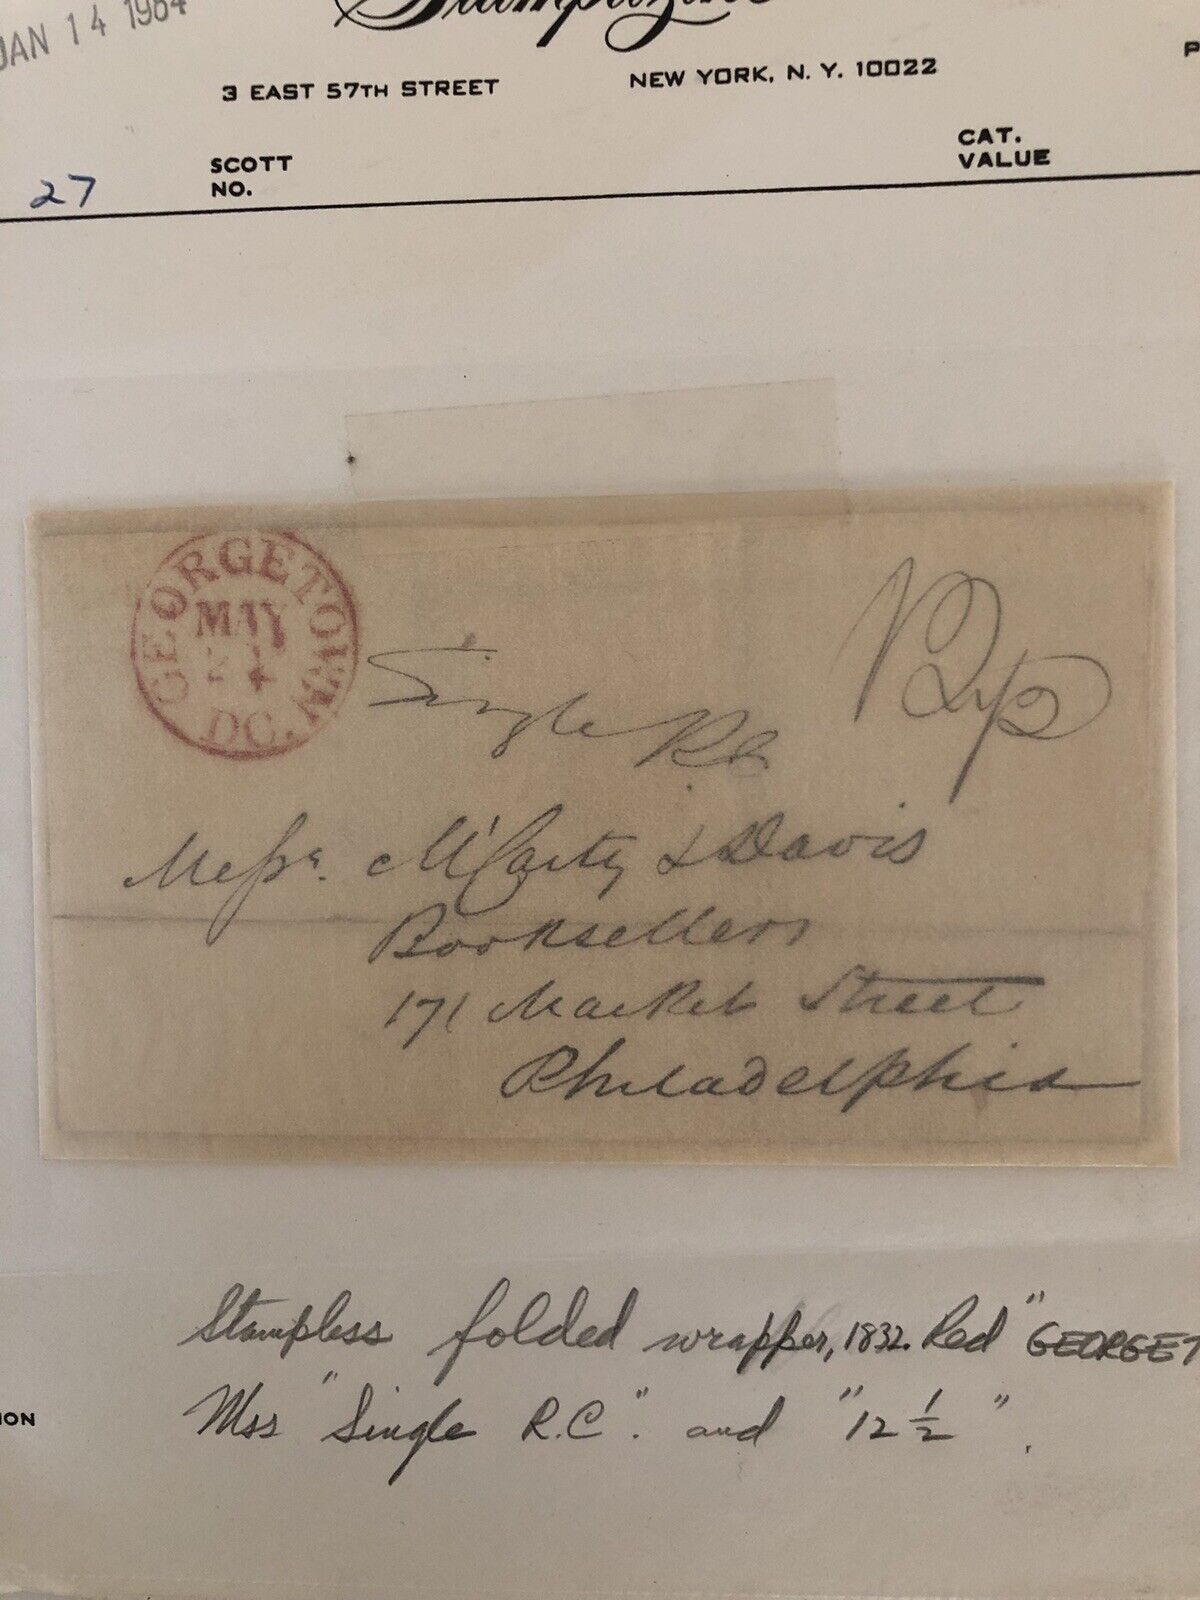 JAN 14 1984
3 EAST 57TH STREET NEW YORK, N. Y. 10022
27 SCOTT NO. CAT. VALUE
GEORGETOWN
MAY
DC.
Single RC
12½
Messr. McCarty & Davis
Booksellers
171 Market Street
Philadelphia
Stampless folded wrapper, 1832. Red "GEORGET
ION
Mss "Single R.C". and "12 ½".